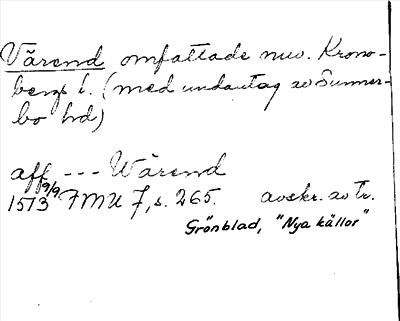 Värend omfattade nuv. Krono-
bergs l. (med undantag av Sunner-
bo hd)
aff --- Wärend
9/9
1513 FMU 7, s. 265. avskr. av tr.
Grönblad, "Nya källor"